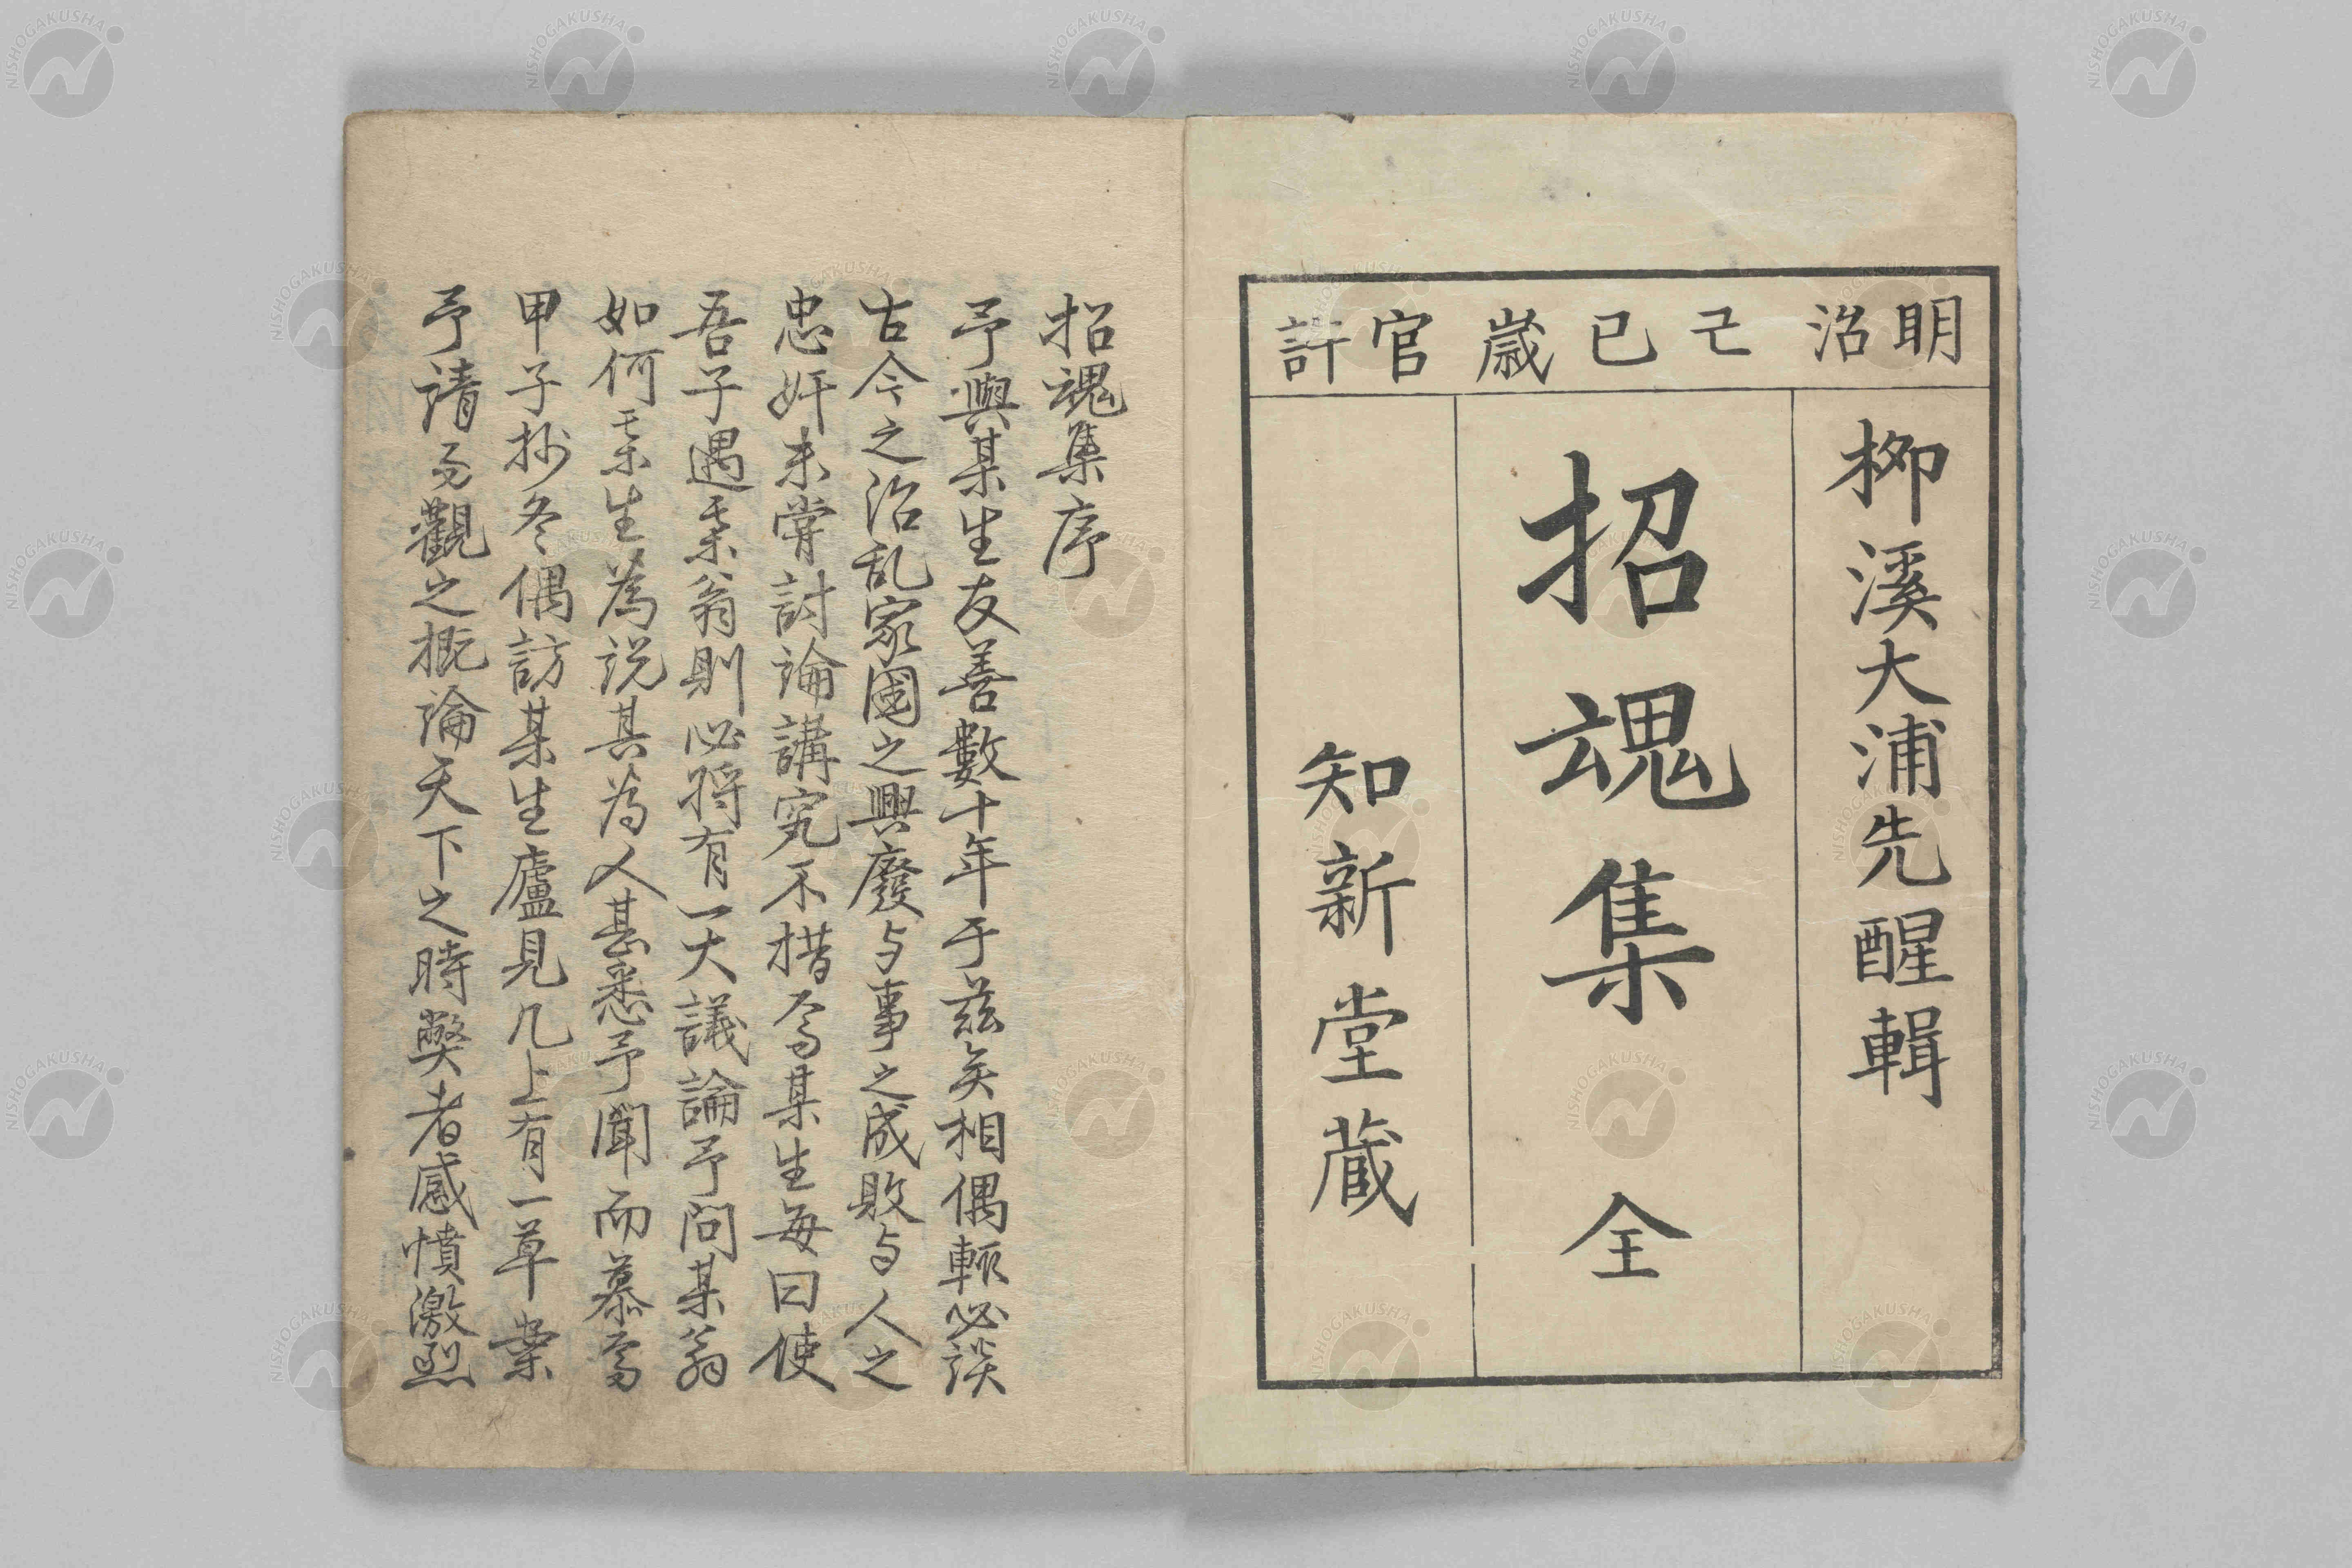 明治己巳歳官許
柳溪大浦先醒輯
招魂集 全
知新堂蔵
招魂集序
予與某生友善數十年于茲矣相偶輒必談
古今之治乱家國之興廢与事之成敗与人之
忠奸未嘗討論講究不措焉某生毎曰使
吾子遇某翁則必将有一大議論予問某翁
如何某生為説其為人甚悉予聞而慕焉
甲子抄冬偶訪某生廬見几上有一草藁
予請而觀之概論天下之時弊者感憤激烈
NISHOGAKUSHA